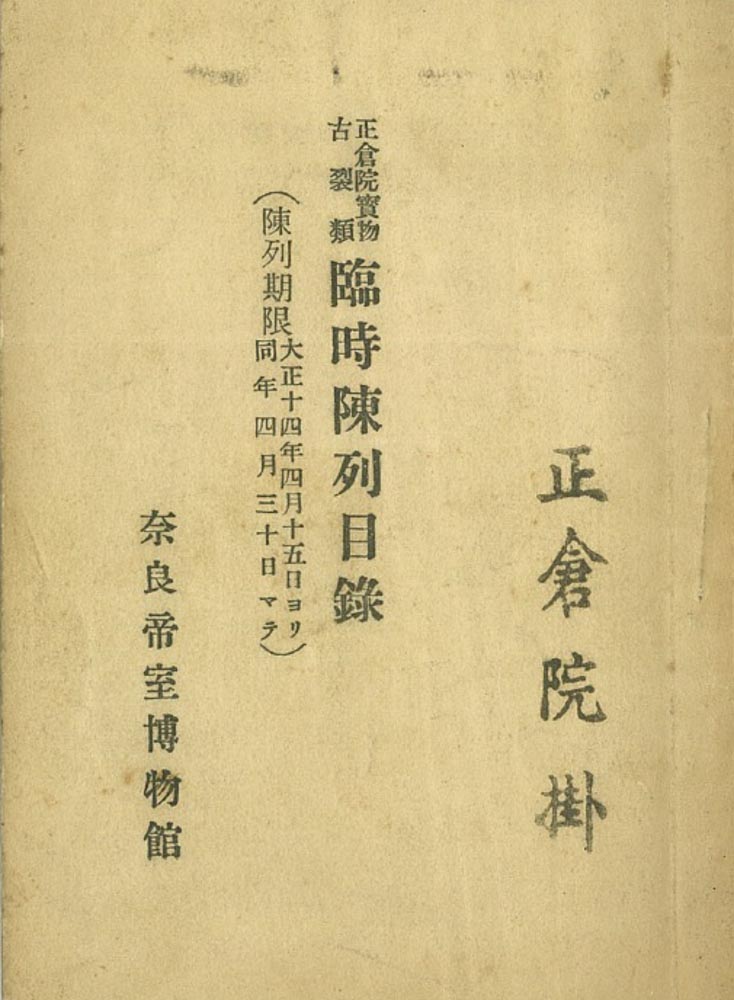 正倉院掛
正倉院寶物
古裂類
臨時陳列目錄
（陳列期限
大正十四年四月十五日ヨリ
同年四月三十日マテ）
奈良帝室博物館